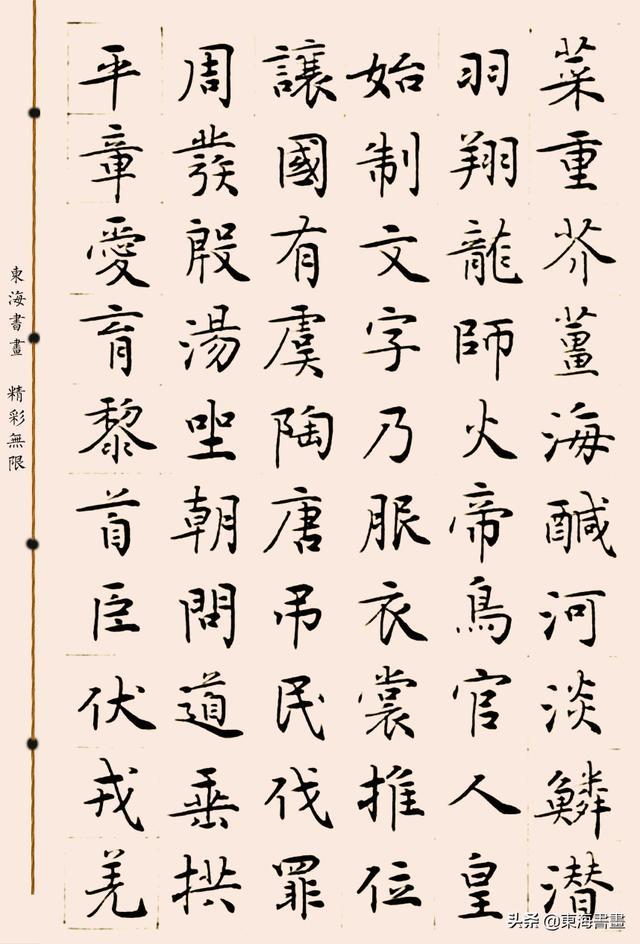 菜重芥薑海鹹河淡鱗潛
羽翔龍師火帝鳥官人皇
始制文字乃服衣裳推位
讓國有虞陶唐吊民伐罪
周發殷湯坐朝問道垂拱
平章愛育黎首臣伏戎羌
東海書畫 精彩無限
头条 @東海書畫